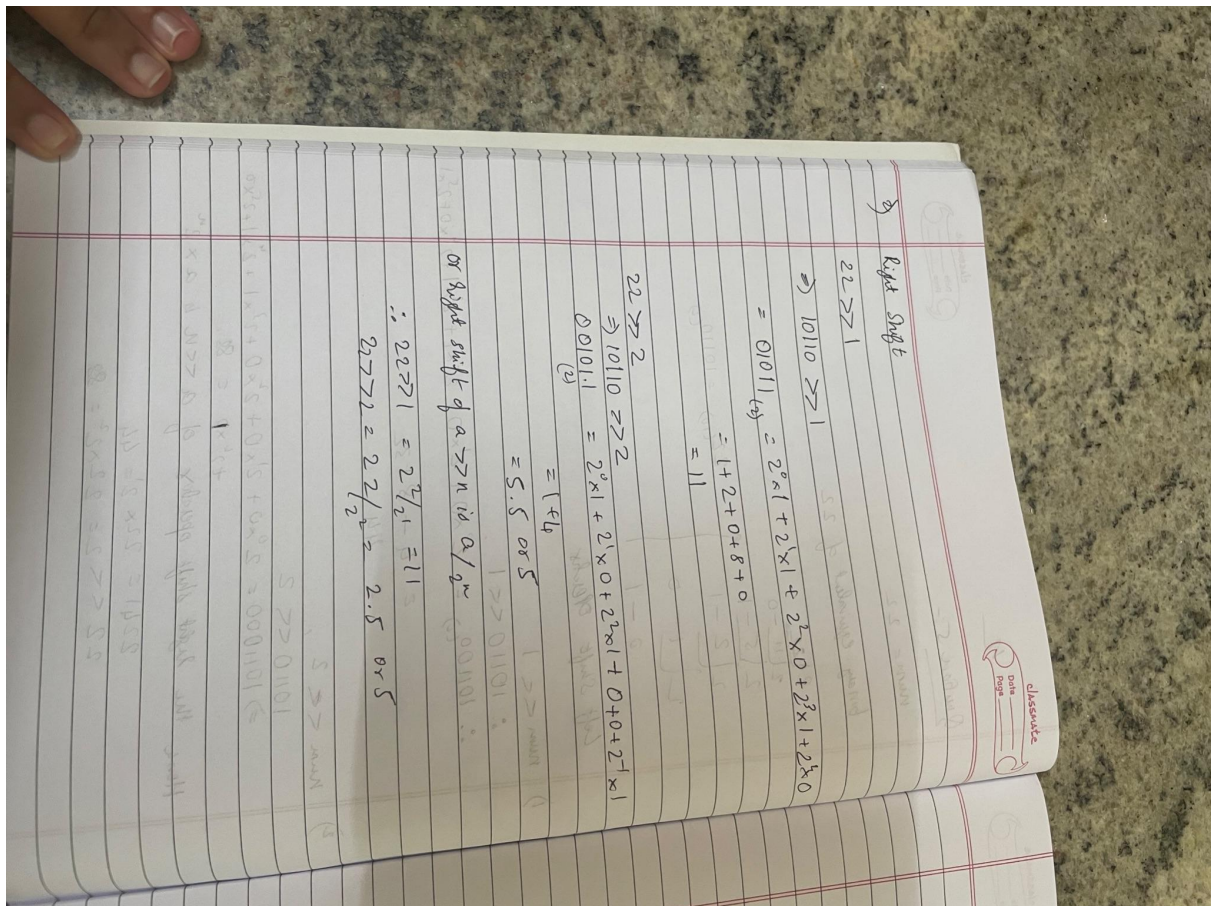 classmate
Date
Page
2) Right Shift
22 >> 1
⇒ 10110 >> 1
= 01011₍₂₎ = 2⁰x1 + 2¹x1 + 2²x0 + 2³x1 + 2⁴x0
= 1+2+0+8+0
= 11
22 >> 2
⇒ 10110 >> 2
00101.1₍₂₎ = 2⁰x1 + 2¹x0 + 2²x1 + 0+0+2⁻¹x1
= 1+4
= 5.5 or 5
or Right shift of a >> n is a/2ⁿ
∴ 22>>1 = 22/2¹ = 11
22>>2 = 22/2² = 2.5 or 5